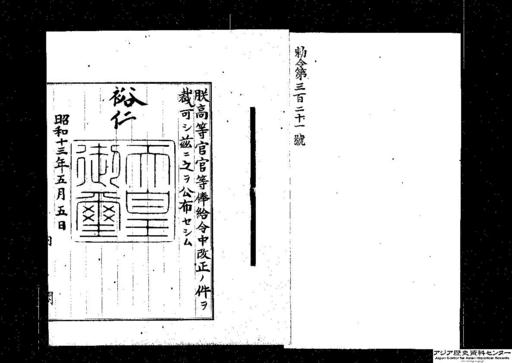 勅令第三百二十一號
朕高等官官等俸給令中改正ノ件ヲ
裁可シ茲ニ之ヲ公布セシム
裕仁
天皇
御璽
昭和十三年五月五日
アジア歴史資料センター
Japan Center for Asian Historical Records